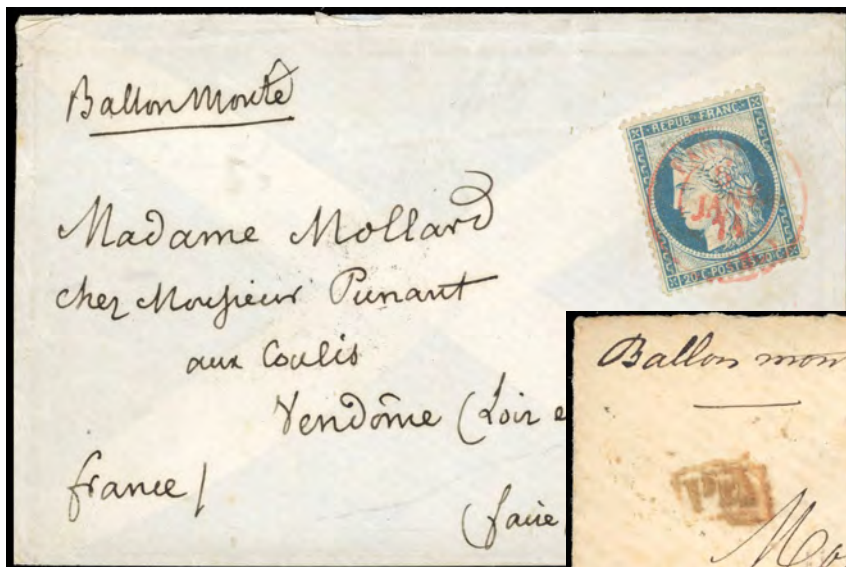 Ballon Monté
REPUB. FRANC.
JANV
71
20 C. POSTES 20 C.
Madame Mollard
chez Monsieur Punant
aux Coulis
Vendôme (Loir e
france/
(faire
Ballon mon
PD